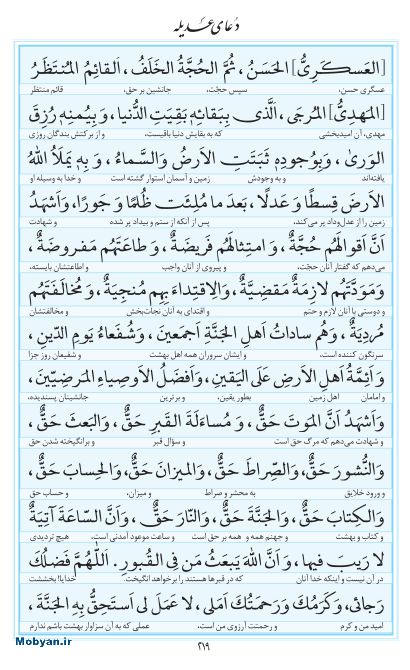 دعای عدیله
[العَسکَرِیُّ] الحَسَنُ، ثُمَّ الحُجَّةُ الخَلَفُ، القائِمُ المُنتَظَرُ
عسکری حسن، سپس حجّت، جانشین بر حق، قائم منتظر
[المَهدِیُّ] المُرجَی، الَّذی بِبَقائِهِ بَقِیَتِ الدُّنیا، وَبِیُمنِهِ رُزِقَ
مهدی، آن امیدبخشی که به بقایش دنیا باقیست، و از برکتش بندگان روزی
الوَریٰ، وَبِوُجودِهِ ثَبَتَتِ الاَرضُ وَالسَّماءُ، وَ بِهِ یَملَأُ اللهُ
یافته‌اند و به وجودش زمین و آسمان استوار گشته است و خدا به وسیله او
الاَرضَ قِسطًا وَ عَدلًا، بَعدَ ما مُلِئَت ظُلمًا وَ جَورًا، وَاَشهَدُ
زمین را از عدل‌وداد پر می‌کند، پس از آنکه از ستم و بیداد پر شده و شهادت
اَنَّ اَقوالَهُم حُجَّةٌ، وَ امتِثالَهُم فَریضَةٌ، وَ طاعَتَهُم مَفروضَةٌ،
می‌دهم که گفتار آنان حجّت، و پیروی از آنان واجب و اطاعتشان بایسته،
وَمَوَدَّتَهُم لازِمَةٌ مَقضِیَّةٌ، وَالاِقتِداءَ بِهِم مُنجِیَةٌ، وَ مُخالَفَتَهُم
و دوستی با آنان لازم و حتم و اقتدای به آنان نجات‌بخش و مخالفتشان
مُردِیَةٌ، وَ هُم ساداتُ اَهلِ الجَنَّةِ اَجمَعینَ، وَ شُفَعاءُ یَومِ الدّینِ،
سرنگون کننده است، و ایشان سروران همه اهل بهشت و شفیعان روز جزا
وَ اَئِمَّةُ اَهلِ الاَرضِ عَلَی الیَقینِ، وَ اَفضَلُ الاَوصِیاءِ المَرضِیّینَ،
و امامان اهل زمین بطور یقین، و برترین جانشینان پسندیده،
وَ اَشهَدُ اَنَّ المَوتَ حَقٌّ، وَ مُساءَلَةَ القَبرِ حَقٌّ، وَ البَعثَ حَقٌّ،
و شهادت می‌دهم که مرگ حق است و سؤال قبر و برانگیخته شدن حق
وَ النُّشورَ حَقٌّ، وَ الصِّراطَ حَقٌّ، وَ المیزانَ حَقٌّ، وَ الحِسابَ حَقٌّ،
و ورود خلایق به محشر و صراط و میزان، و حساب حق
وَ الکِتابَ حَقٌّ، وَ الجَنَّةَ حَقٌّ، وَ النّارَ حَقٌّ، وَ اَنَّ السّاعَةَ آتِیَةٌ
و کتاب و بهشت و جهنم همه و همه بر حق است و ساعت موعود آمدنی است. هیچ تردیدی
لا رَیبَ فیها، وَ اَنَّ اللهَ یَبعَثُ مَن فِی القُبورِ. اَللّٰهُمَّ فَضلُكَ
در آن نیست و اینکه خدا آنان که در قبرها هستند را برخواهد انگیخت خدایا! بخششت
رَجائی، وَ کَرَمُكَ وَ رَحمَتُكَ اَمَلی، لا عَمَلَ لی اَستَحِقُّ بِهِ الجَنَّةَ،
امید من و کرم و رحمتت آرزوی من است. عملی که به آن سزاوار بهشت باشم ندارم
۲۱۹
Mobyan.ir